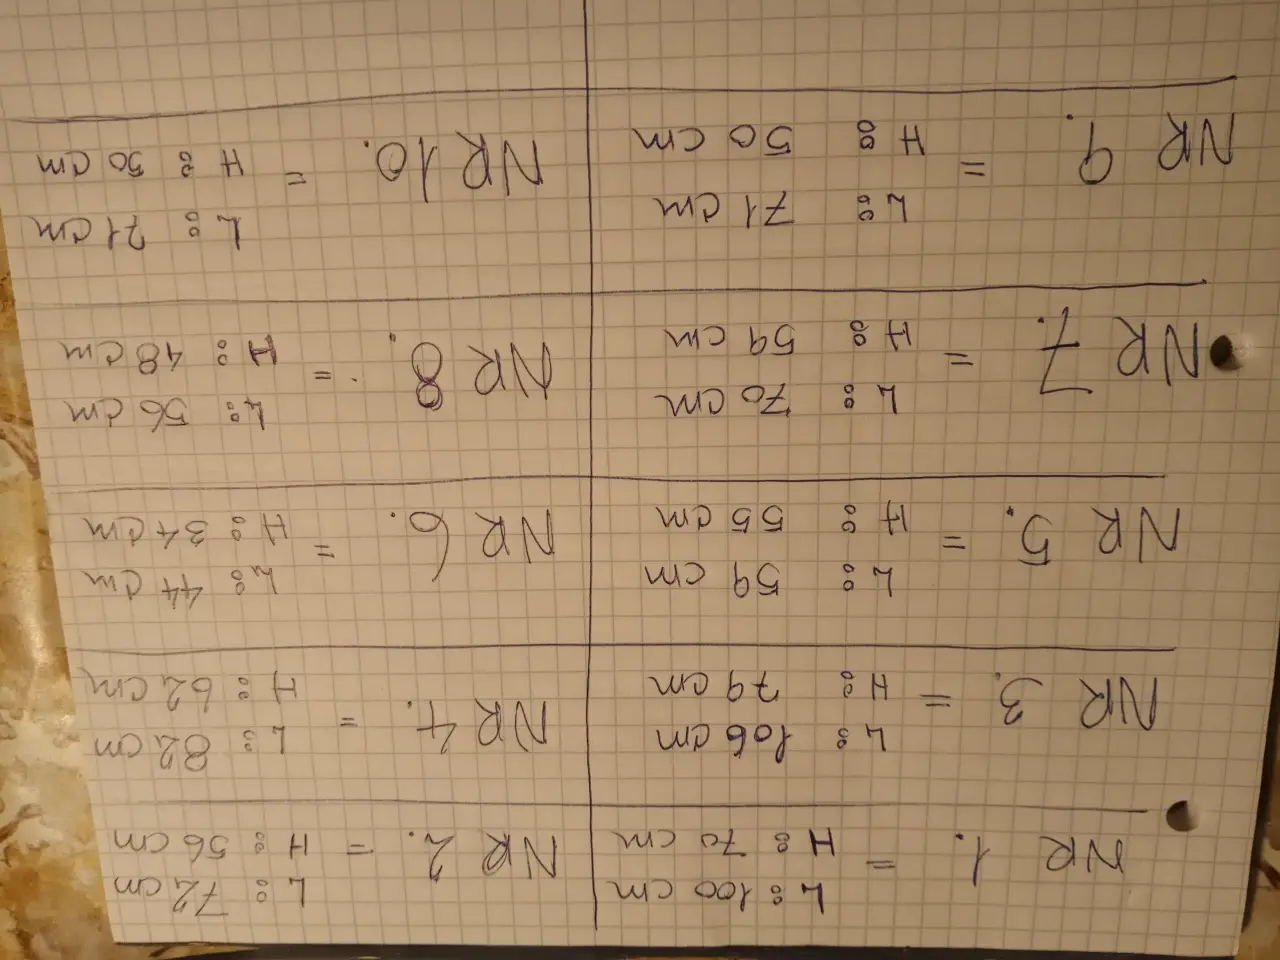 NR 1. = L: 100 cm
H: 70 cm
NR 2. = L: 72 cm
H: 56 cm
NR 3. = L: 106 cm
H: 79 cm
NR 4. = L: 82 cm
H: 62 cm
NR 5. = L: 59 cm
H: 55 cm
NR 6. = L: 44 cm
H: 34 cm
NR 7. = L: 70 cm
H: 59 cm
NR 8. = L: 56 cm
H: 48 cm
NR 9. = L: 71 cm
H: 50 cm
NR 10. = L: 71 cm
H: 50 cm